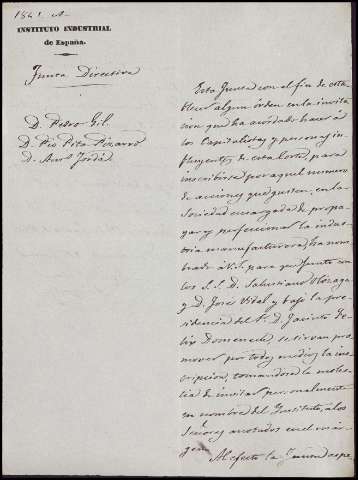 1841
INSTITUTO INDUSTRIAL
de España.
Junta Directiva
D. Pedro Gil
D. Pio Pita Pizarro
D. Jordá
Esta Junta con el fin de esta
blecer algun órden en la invita
cion que ha acordado hacer á
los Capitalistas y personas in
fluyentes de esta Corte, para
inscribirse por aquel numero
de acciones que gusten, en la
Sociedad encargada de propa
gar y perfeccionar la indus
tria manufacturera, ha nom
brado á V.S. para que junto con
los S.S. D. Salustiano Olozaga
y D. José Vidal y bajo la pre
sidencia del Sr. D. Jacinto Fe
liu Domenech, se sirvan pro
mover por todos medios la ins
cripcion, tomandose la moles
tia de invitar personalmente
en nombre del Instituto, a los
Señores anotados en el már
gen.
Al efecto la Junta espe